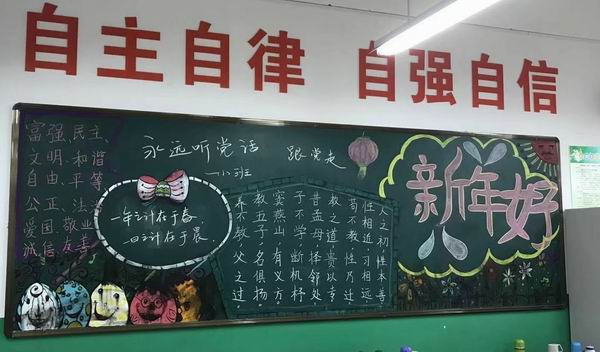 自主自律 自强自信
富强、民主、
文明、和谐
自由、平等
公正、法治
爱国、敬业
诚信、友善
永远听党话 跟党走
一年之计在于春
一日之计在于晨
人之初性本善
性相近习相远
苟不教性乃迁
教之道贵以专
昔孟母择邻处
子不学断机杼
窦燕山有义方
教五子名俱扬
养不教父之过
新年好